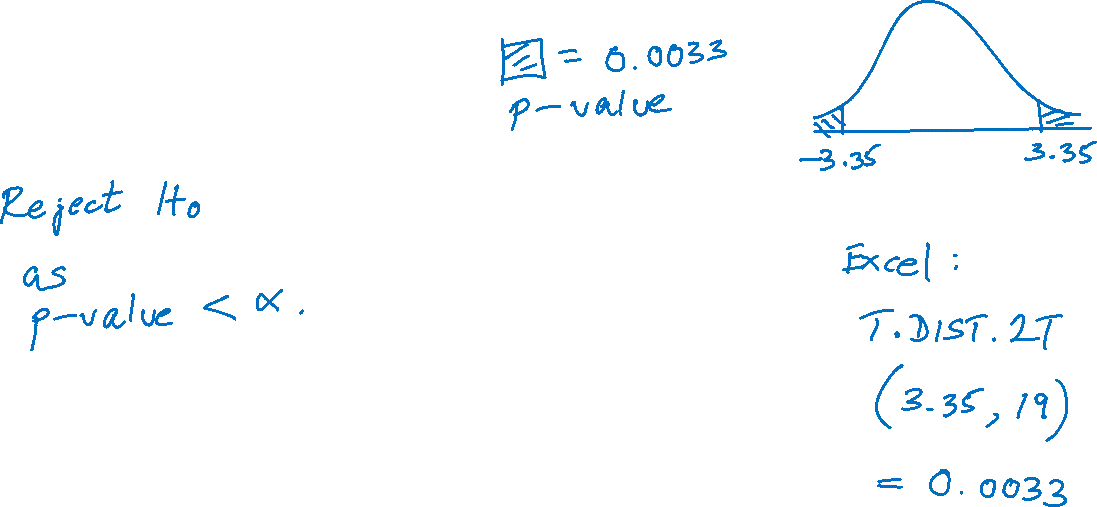 = 0.0033
p-value
-3.35 3.35
Reject H₀
as
p-value < α.
Excel:
T.DIST.2T
(3.35, 19)
= 0.0033